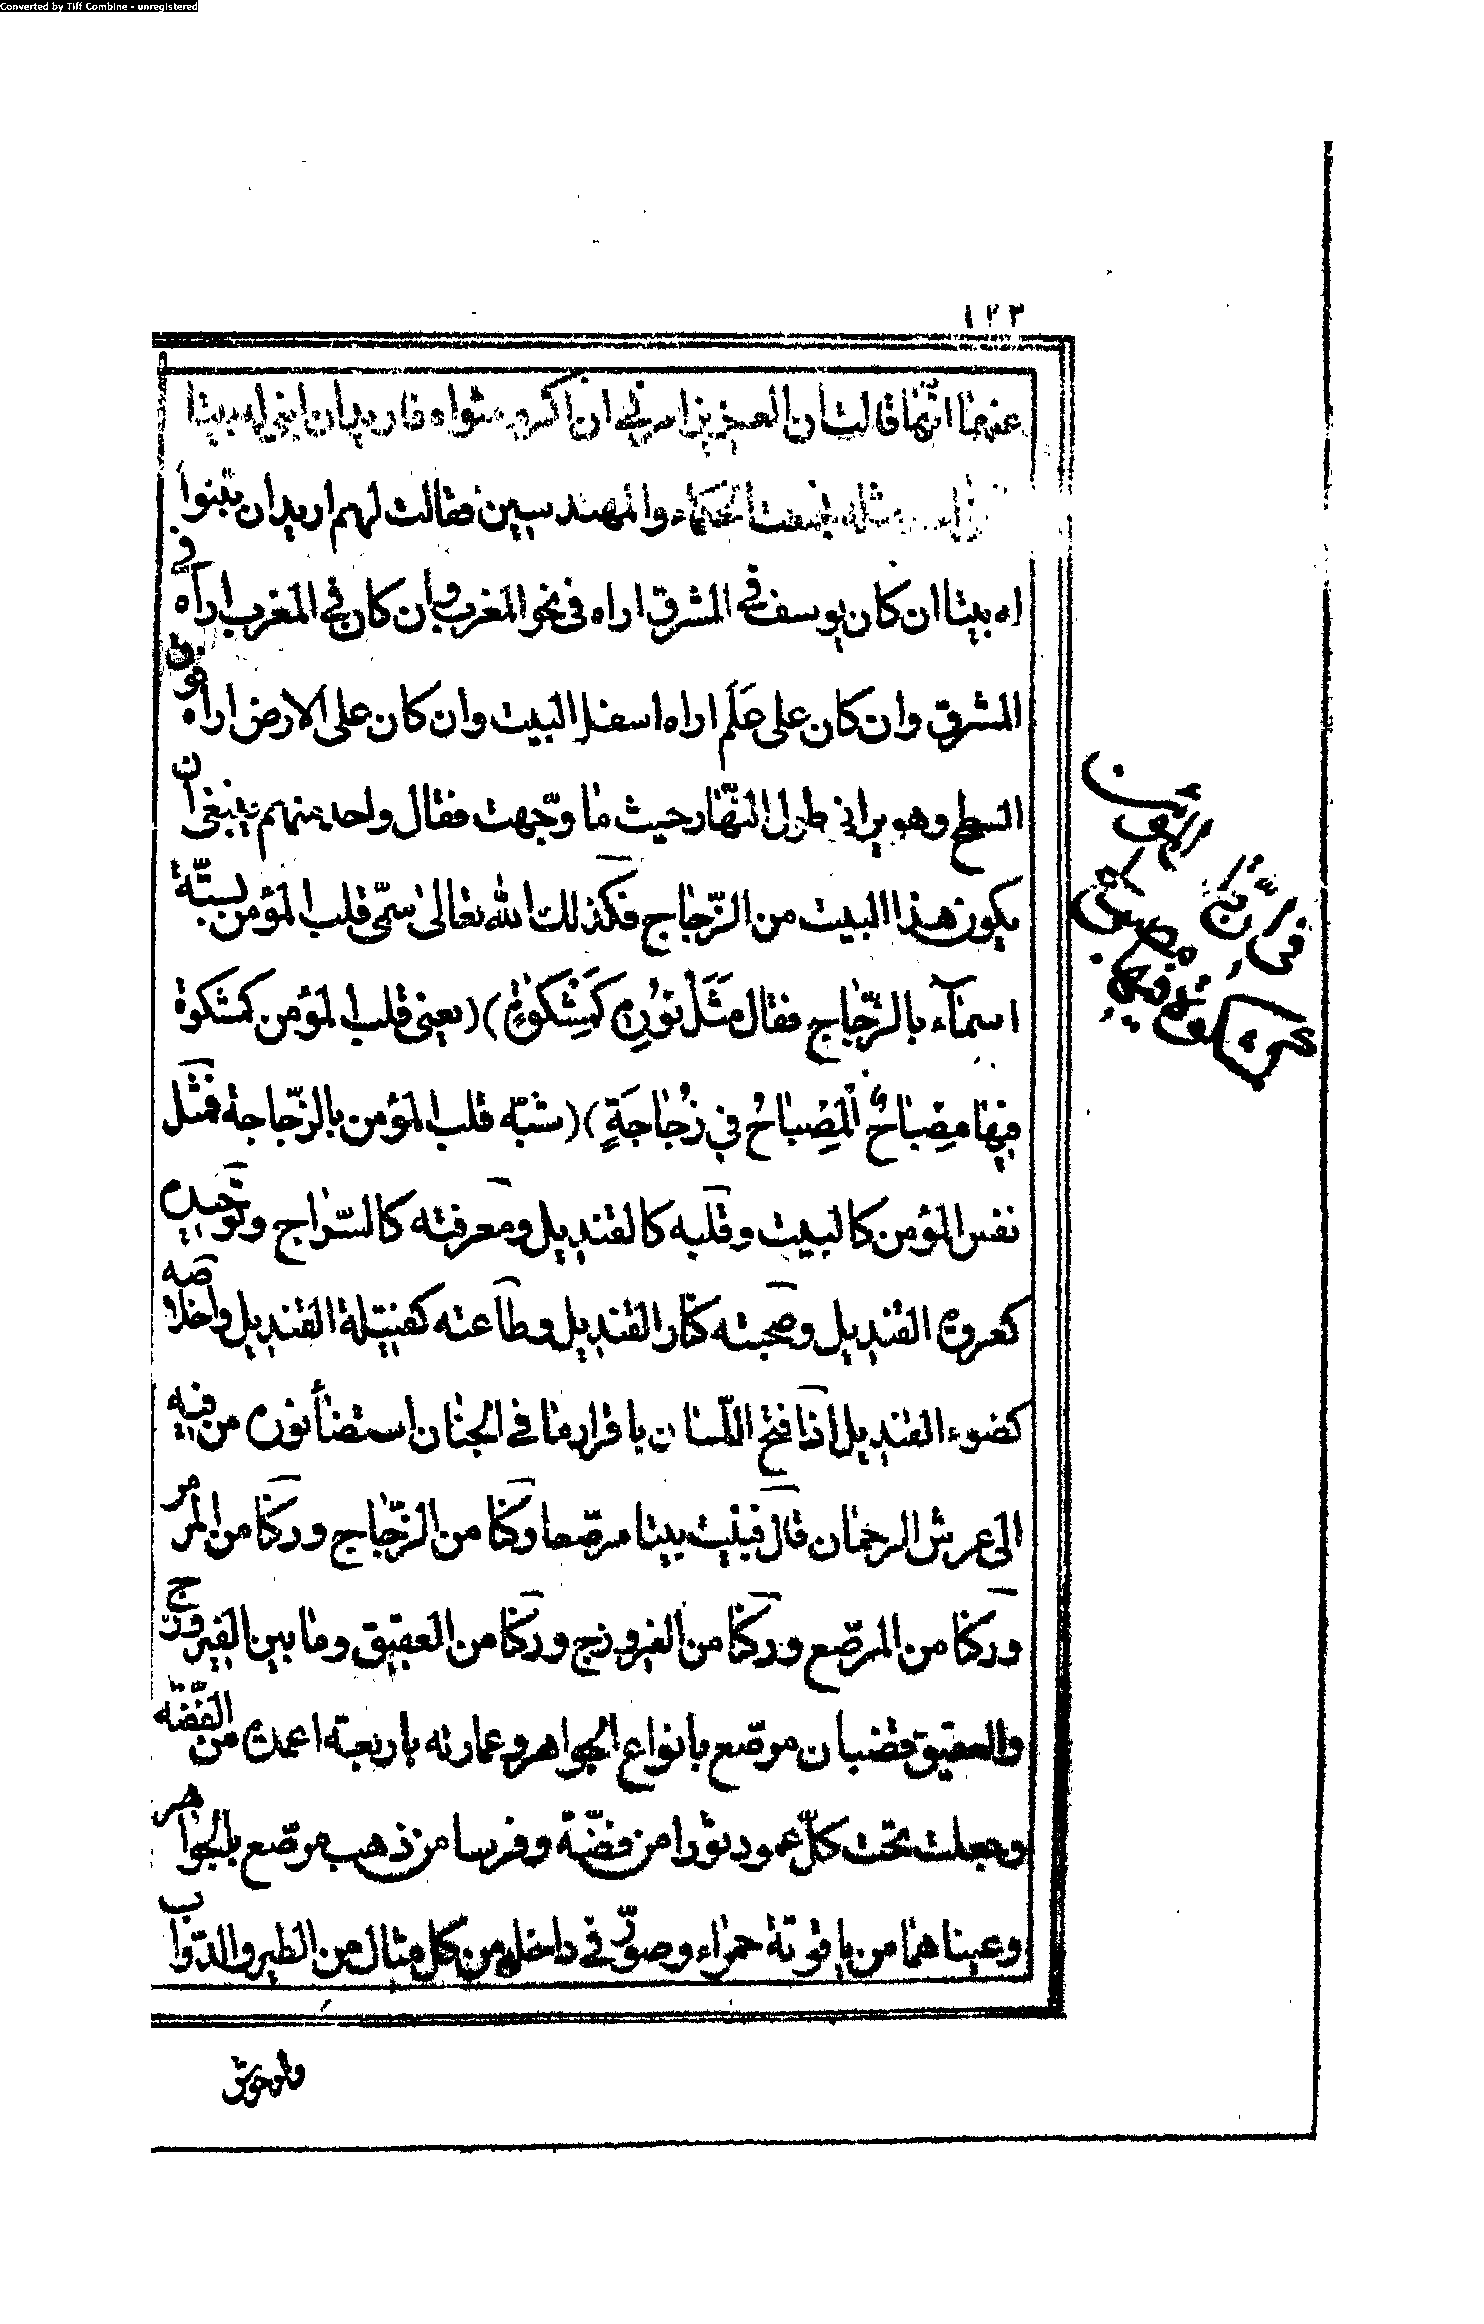 Converted by Tiff Combine - unregistered
١٢٣
عنهما انّها قالت ان العزيز امرنى ان اكرم مثواه فاريد ان ابنى له بيتا
والمهندسين فقالت لهم اريد ان تبنوا
له بيتا ان كان يوسف فى المشرق اراه فى نحو المغرب وان كان فى المغرب اراه فى
المشرق وان كان على عَلَم اراه اسفل البيت وان كان على الارض اراه فوق
السطح وهو يرانى طول النّهار حيث ما وجّهت فقال واحد منهم ينبغى ان
يكون هذا البيت من الزّجاج فكذلك الله تعالى سمّى قلب المؤمن بستّة
اسمآء بالزّجاج فقال مَثَلُ نُورِهِ كَمِشْكٰوةٍ) (يعنى قلب المؤمن كمشكوة
فِيهَا مِصْبَاحٌ اَلْمِصْبَاحُ فِي زُجَاجَةٍ) (شبّه قلب المؤمن بالزّجاجة فمثل
نفس المؤمن كالبيت وقلبه كالقنديل ومعرفته كالسّراج وتوحيده
كعروه القنديل وصحبته كنار القنديل وطاعته كفتيلة القنديل واخلاصه
كضوء القنديل اذا فتح اللّسان باقرار ما فى الجنان استضأ نوره من فيه
الى عرش الرحمان قال فبنيت بيتا مرصّعا ركنا من الزّجاج وركنا من المرمر
وركنا من المرصّع وركنا من الفيروزج وركنا من العقيق وما بين الفيروزج
والعقيق قضبان مرصّع بانواع الجواهر وعمارته باربعة اعمده من الفضّه
وجعلت تحت كلّ عمود ثورا من فضّة وفرسا من ذهب مرصّع بالجواهر
وعيناهما من ياقوتة حمراء وصوّر فى داخله من كل مثال من الطير والدوّاب
والوحوش